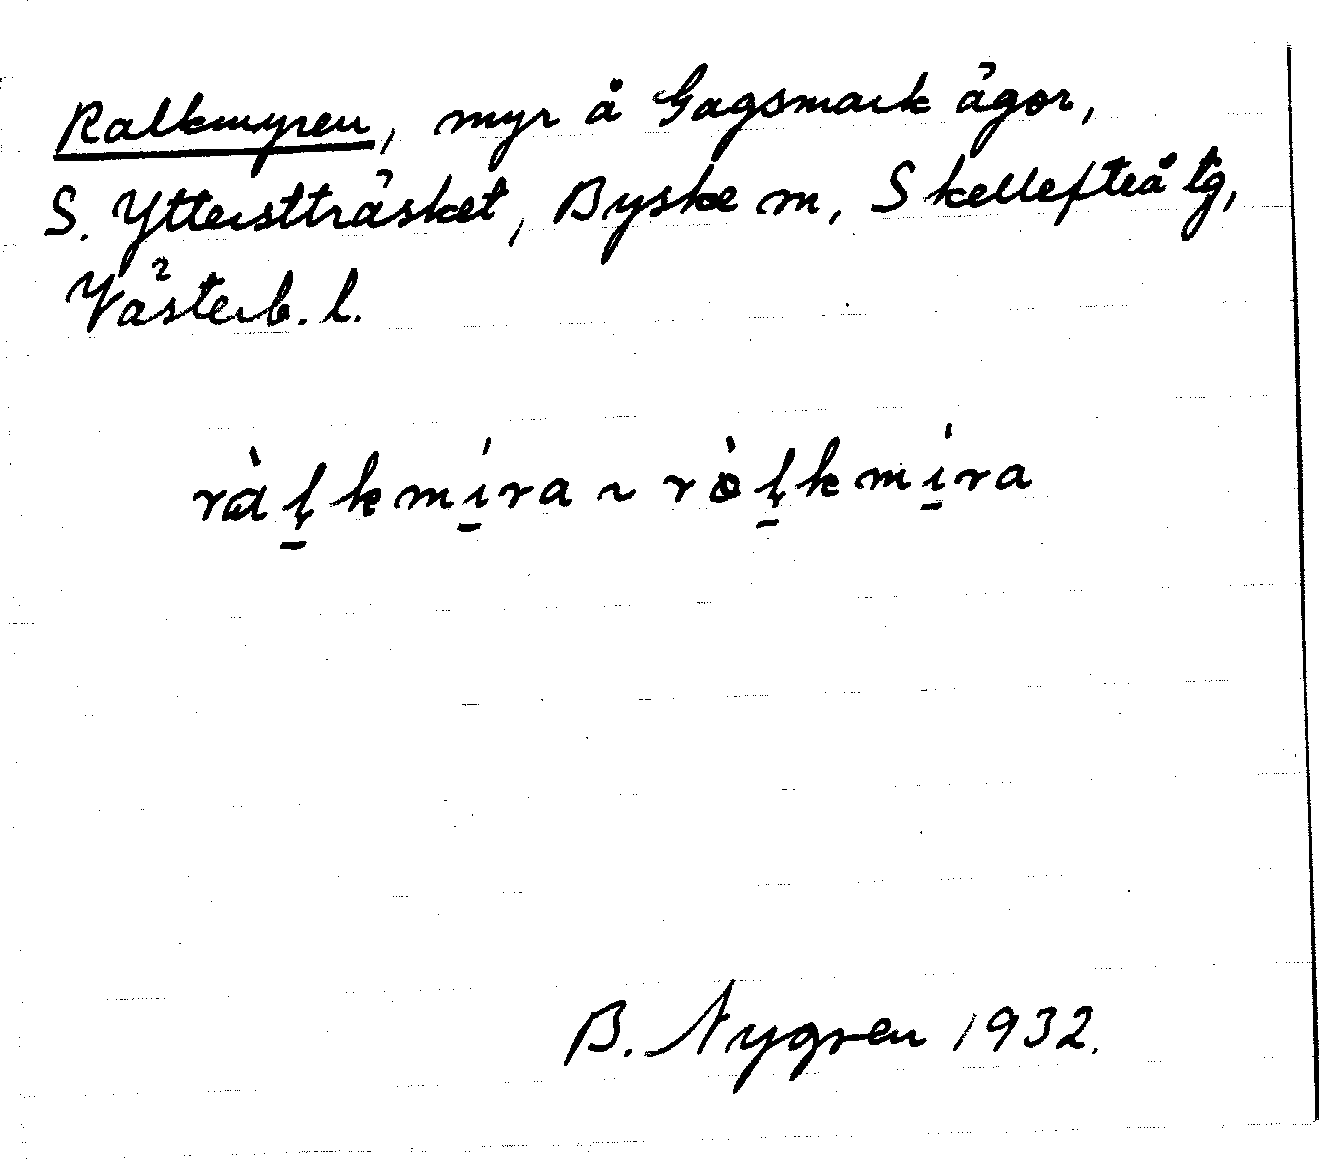 Ralkmyren, myr å Gagsmark ägor,
S. Ytterstträsket, Byske sn, Skellefteå tg,
Västerb. l.
ràl̥̱kmí̱ra ~ ròl̥̱kmí̱ra
B. Nygren 1932.